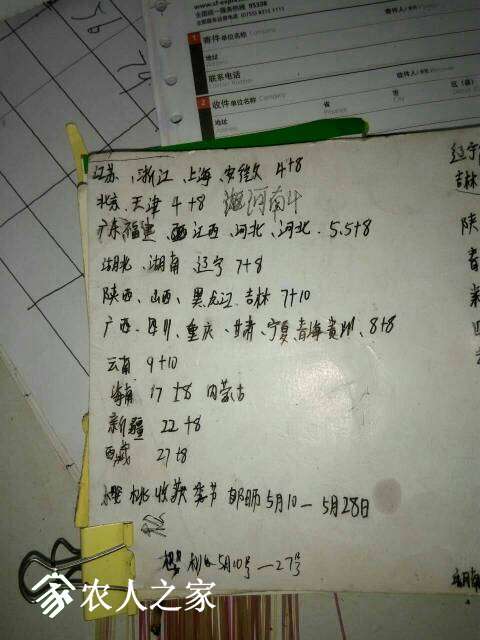 www.sf-expr
全国统一服务热线 95338
全国服务监督热线 (0755) 8315 1111
1 寄件 单位名称 Company
地址
Address
联系电话
Contact Number
收件人/
2 收件 单位名称 Company
收件人/
地址
Address
省
Province
市
City
区（县）
江苏、浙江、上海、安徽 4+8
北京、天津 4+8 河南4
广东福建 江西、河北、河北、5.5+8
湖北、湖南 辽宁 7+8
陕西、山西、黑龙江、吉林 7+10
广西、四川、重庆、甘肃、宁夏、青海贵州、8+8
云南 9+10
海南 17+8 内蒙古
新疆 22+8
西藏 27+8
樱桃 收获 季节 阳历5月10—5月28日
5月10号—27号
辽宁
吉林
陕
青
农人之家